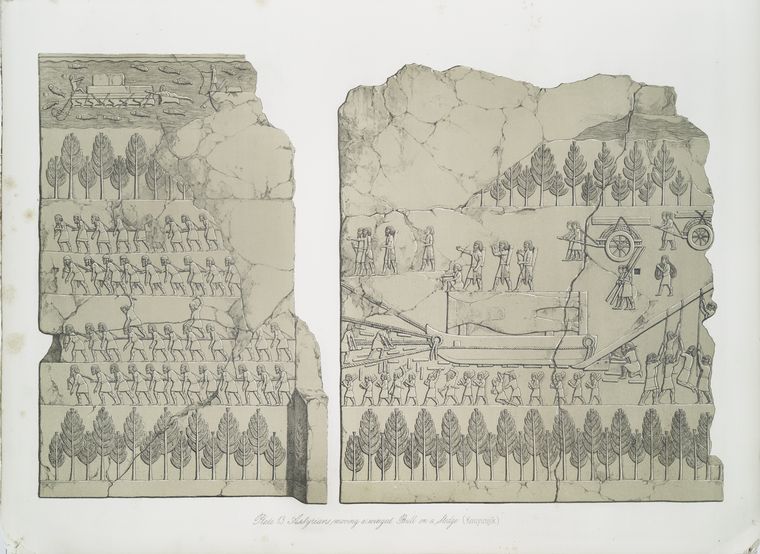 Plate 13. Assyrians, moving a winged Bull on a Sledge (Kouyunjik)